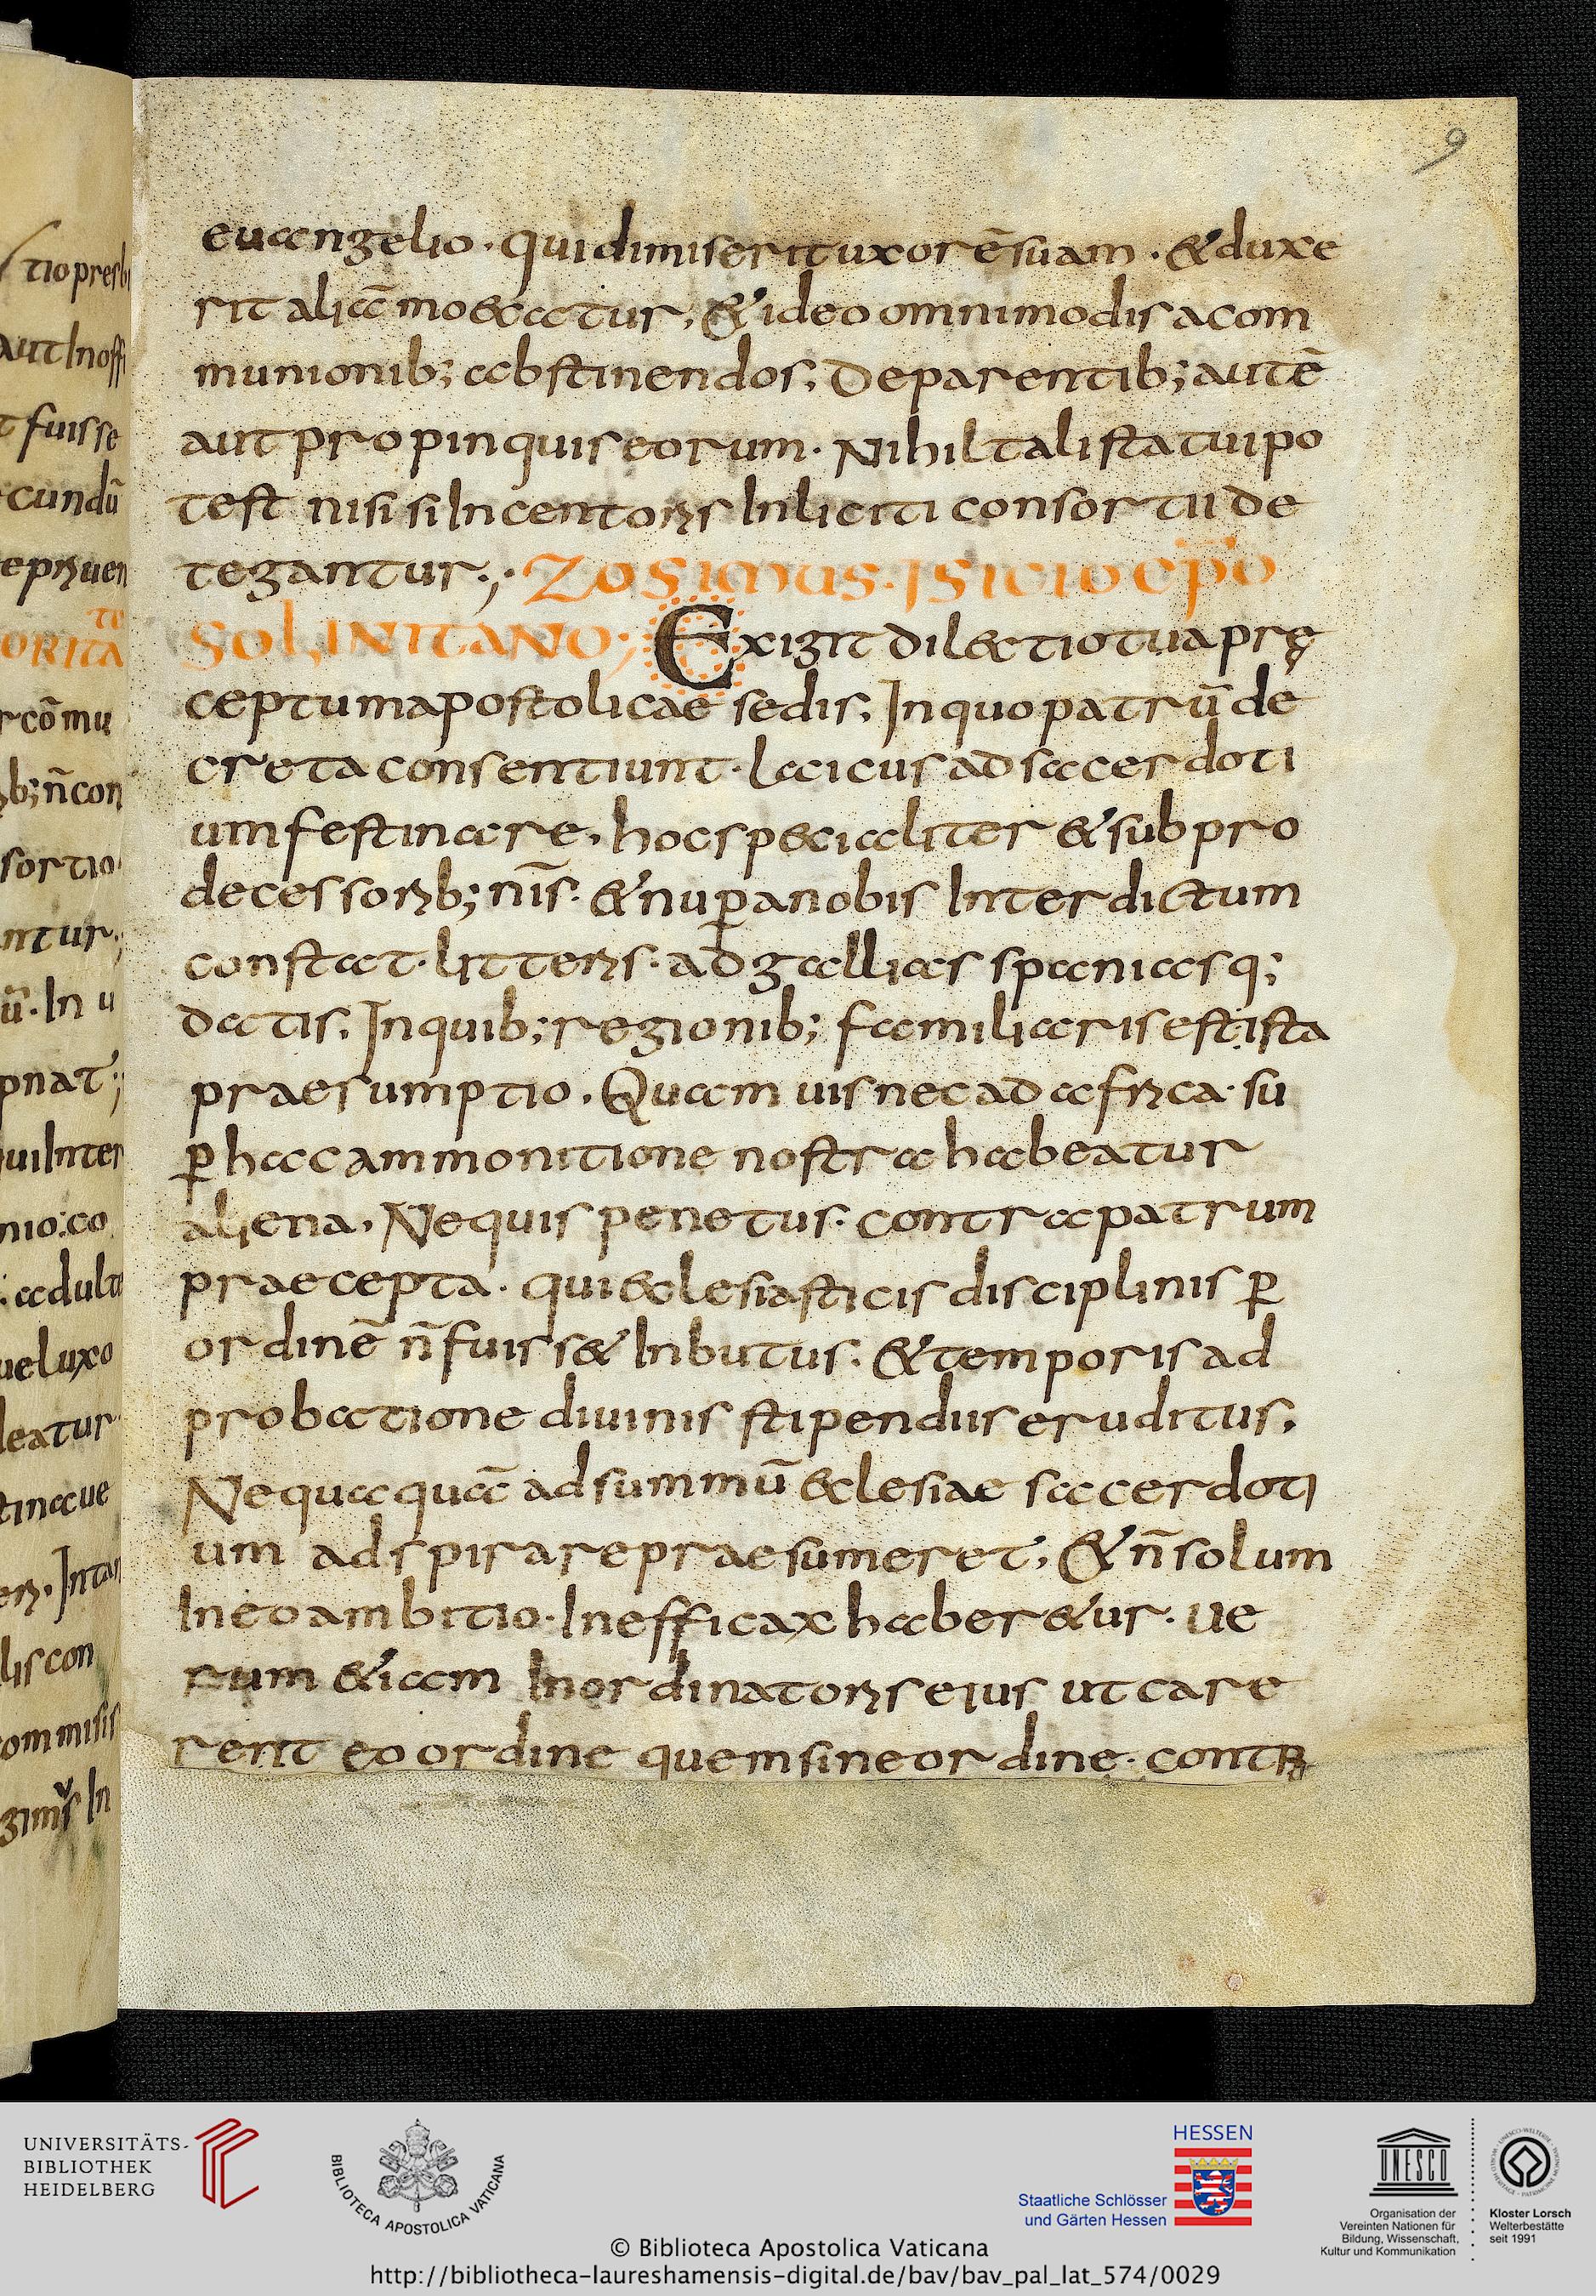 9
euangelio. qui dimiserit uxorē suam. & duxe
rit aliā moechatur, & ideo omnimodis a com
munionib; abstinendos, De parentib; autē
aut propinquis eorum. Nihil tali statui po
test nisi si Incentoris Inliciti consortii de
tegantur; Zosimus. Isicio ep̄o
Solinitano; Exigit dilectio tua prę
ceptum apostolicae sedis, In quo patrū de
creta consentiunt. laicus ad sacerdoti
um festinare, hoc specialiter & sub pro
decessorib; n̄is. & nup̱ a nobis Interdictum
constat. litteris. ad gallias spaniasq;
datis, In quib; regionib; familiaris est ista
praesumptio, Quam uis nec ad africa. su
p̱ hac ammonitione nostra habeatur
aliena, Ne quis penetus. contra patrum
praecepta. qui eclesiasticis disciplinis p̱
ordinē n̄ fuiss& Inbutus. & temporis ad
probatione diuinis stipendiis eruditus,
Nequaquā ad summū eclesiae sacerdoti
um adspirare praesumeret, & n̄ solum
In eo ambitio. Inefficax haber&ur. ue
rum &iam In ordinatoris eius ut care
rent eo ordine quem sine ordine. contr
tio presb
aut In offi
t fuisse
cundū
ORITA
TE
r cōmu
b; n̄ con
sortio
ntur;
ū. In u
pnat;
ui Inter
nio. co
adult
uel uxo
leatur
tinaue
lis con
ommisis
gimus In
UNIVERSITÄTS-
BIBLIOTHEK
HEIDELBERG
BIBLIOTECA APOSTOLICA VATICANA
HESSEN
Staatliche Schlösser
und Gärten Hessen
UNESCO
Organisation der
Vereinten Nationen für
Bildung, Wissenschaft,
Kultur und Kommunikation
Kloster Lorsch
Welterbestätte
seit 1991
© Biblioteca Apostolica Vaticana
http://bibliotheca-laureshamensis-digital.de/bav/bav_pal_lat_574/0029